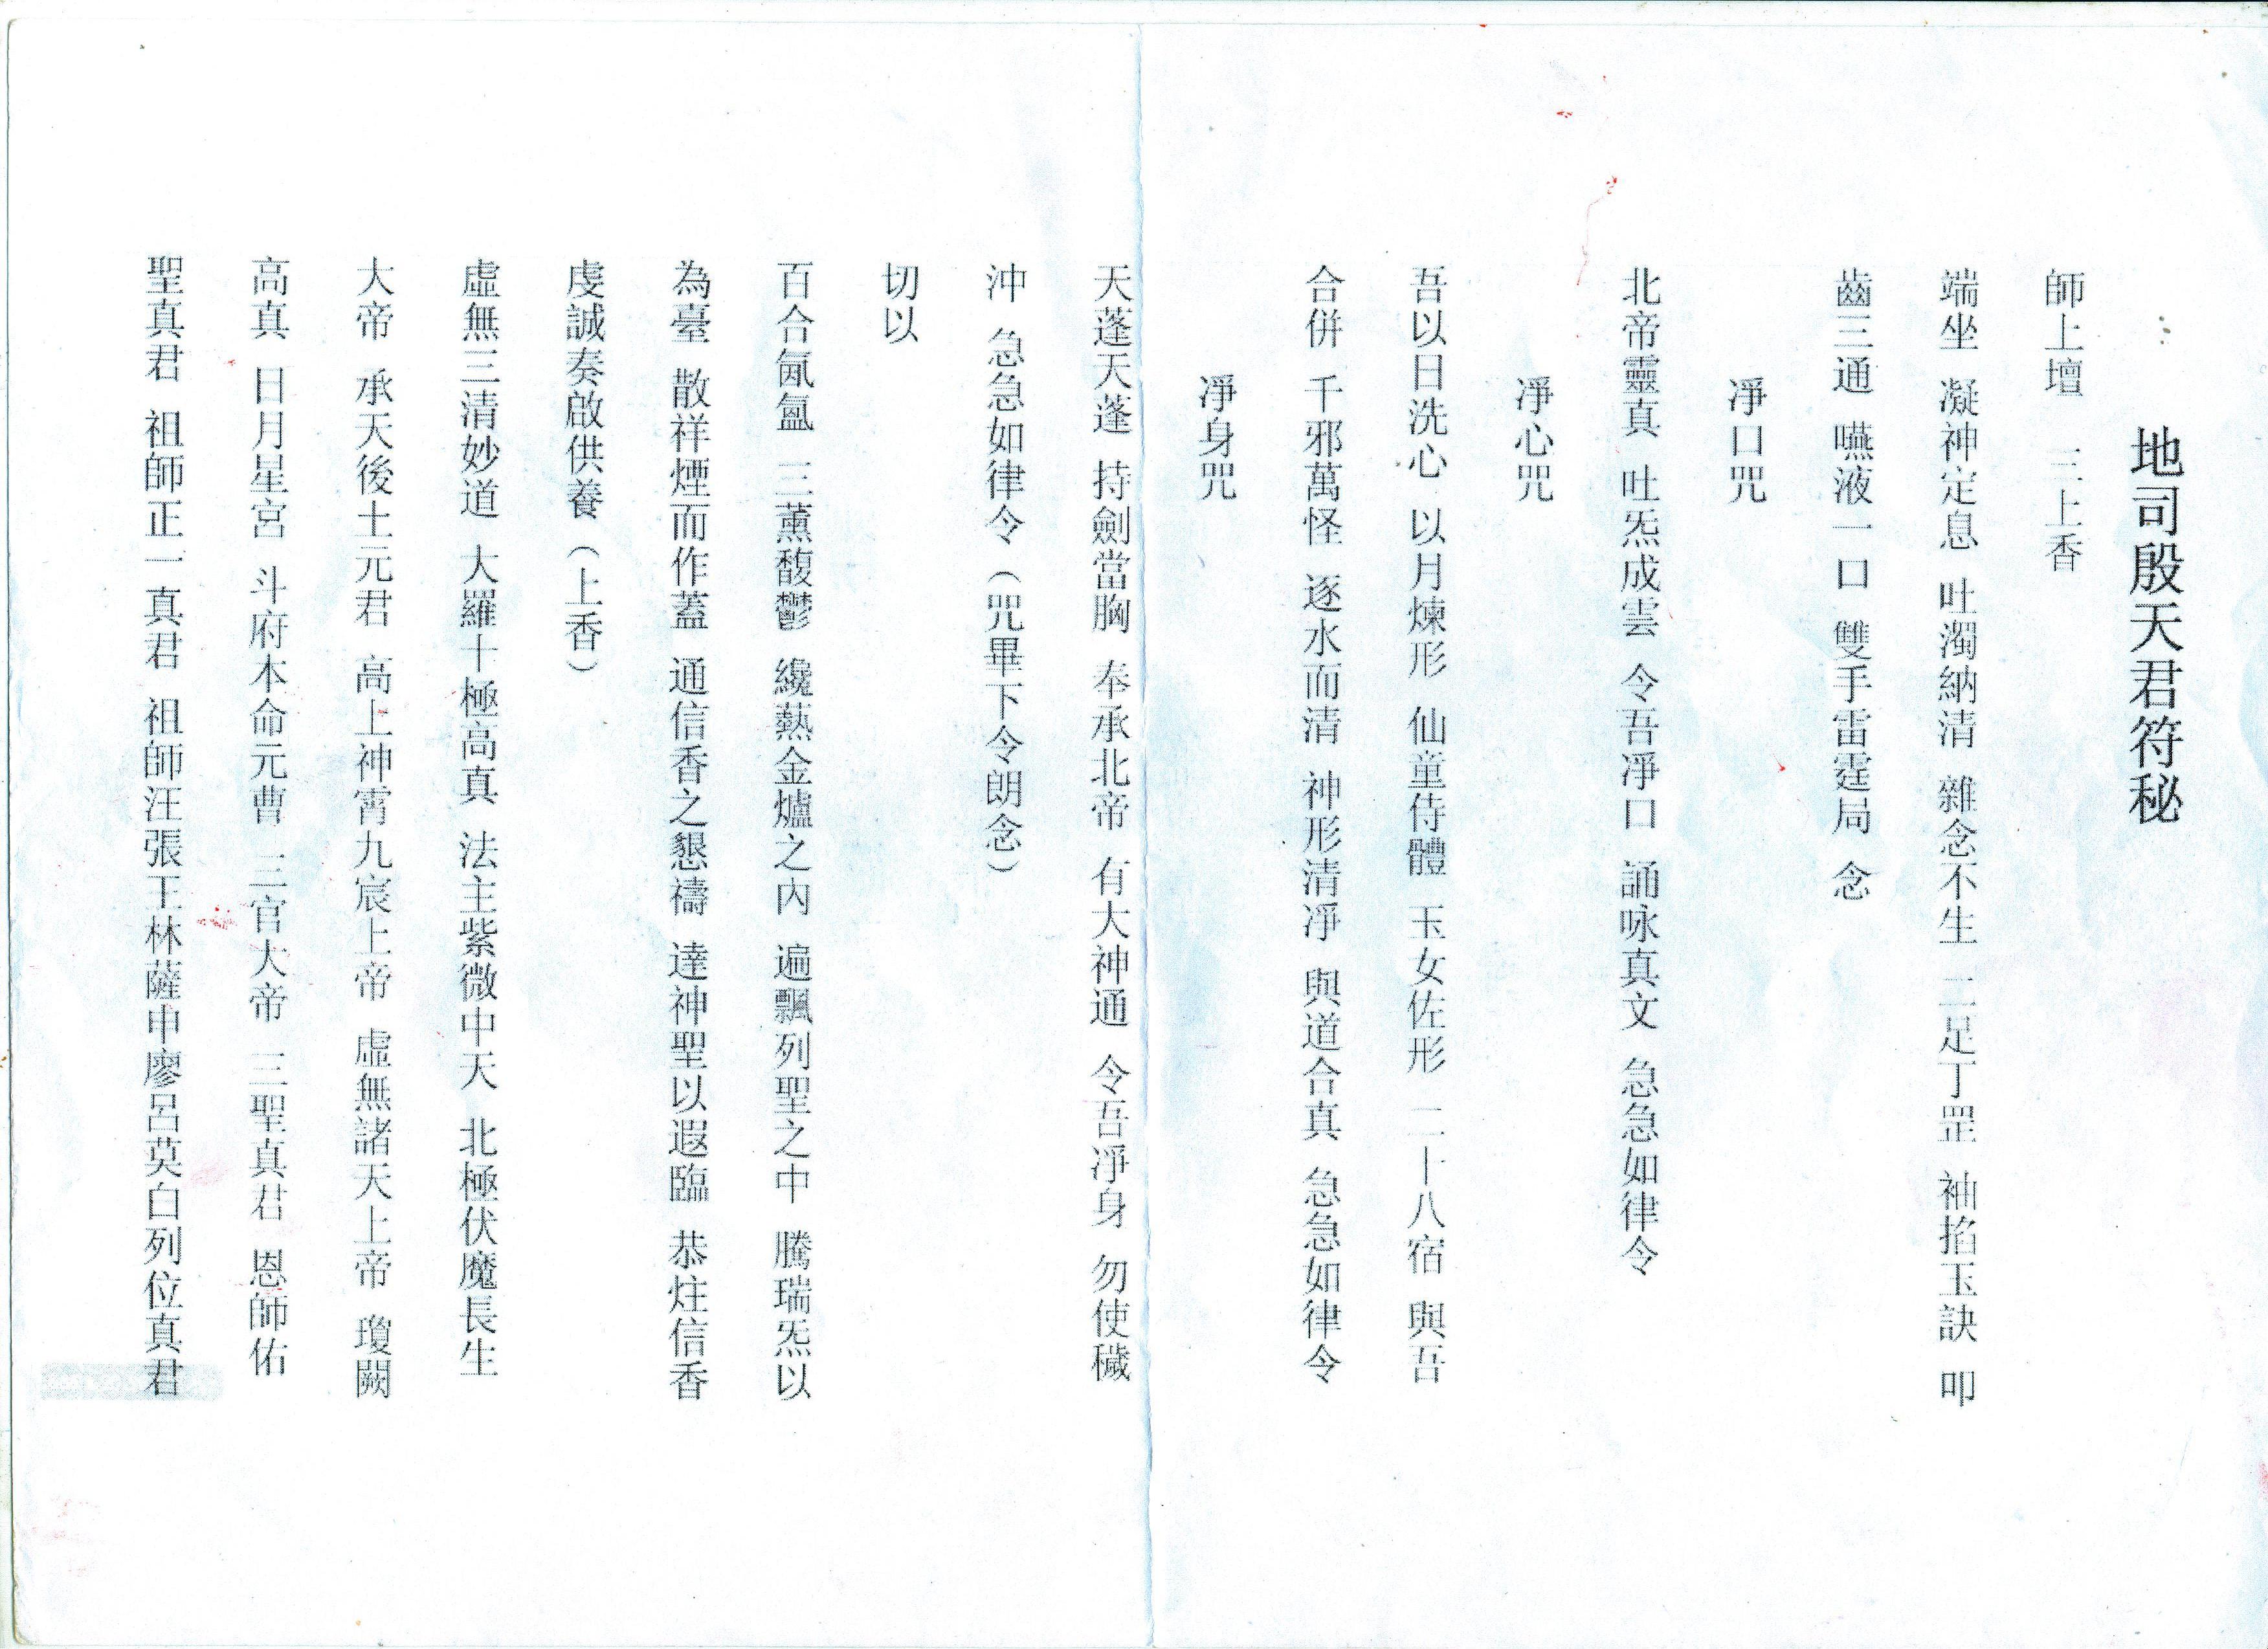 地司殷天君符秘
師上壇　三上香
端坐 凝神定息 吐濁納清 雜念不生 二足丁罡 袖掐玉訣 叩
齒三通 嚥液一口 雙手雷霆局 念
淨口咒
北帝靈真 吐炁成雲 令吾淨口 誦咏真文 急急如律令
淨心咒
吾以日洗心 以月煉形 仙童侍體 玉女佐形 二十八宿 與吾
合併 千邪萬怪 逐水而清 神形清淨 與道合真 急急如律令
淨身咒
天蓬天蓬 持劍當胸 奉承北帝 有大神通 令吾淨身 勿使穢
沖 急急如律令（咒畢下令朗念）
切以
百合氤氳 三薰馥鬱 纔爇金爐之內 遍飄列聖之中 騰瑞炁以
為臺 散祥煙而作蓋 通信香之懇禱 達神聖以遐臨 恭炷信香
虔誠奏啟供養（上香）
虛無三清妙道 大羅十極高真 法主紫微中天 北極伏魔長生
大帝 承天後土元君 高上神霄九宸上帝 虛無諸天上帝 瓊闕
高真 日月星宮 斗府本命元曹 三官大帝 三聖真君 恩師佑
聖真君 祖師正一真君 祖師汪張王林薩申廖呂莫白列位真君